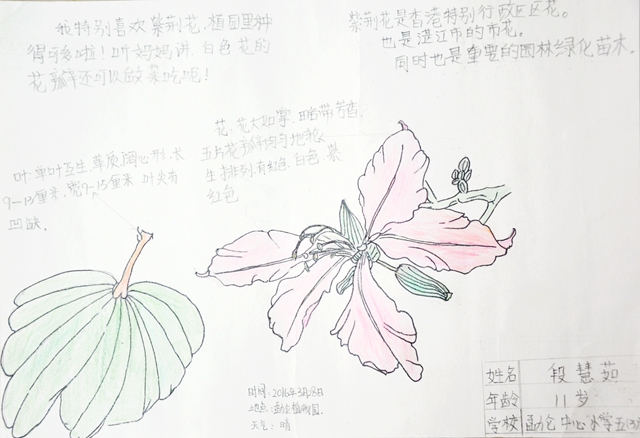 我特别喜欢紫荆花,植园里种
得可多啦!听妈妈讲,白色花的
花瓣还可以做菜吃呢!
紫荆花是香港特别行政区区花。
也是湛江市的市花。
同时也是重要的园林绿化苗木。
花,花大如掌,略带芳香,
五片花瓣均匀地轮
生排列,有红色,白色,紫
红色
叶,单叶互生,革质阔心形,长
9-13厘米,宽9-13厘米 叶尖有
凹缺.
时间:2016年3月8日
地点:勐仑植物园.
天气:晴
姓名 段慧茹
年龄 11岁
学校 勐仑中心小学五(3)